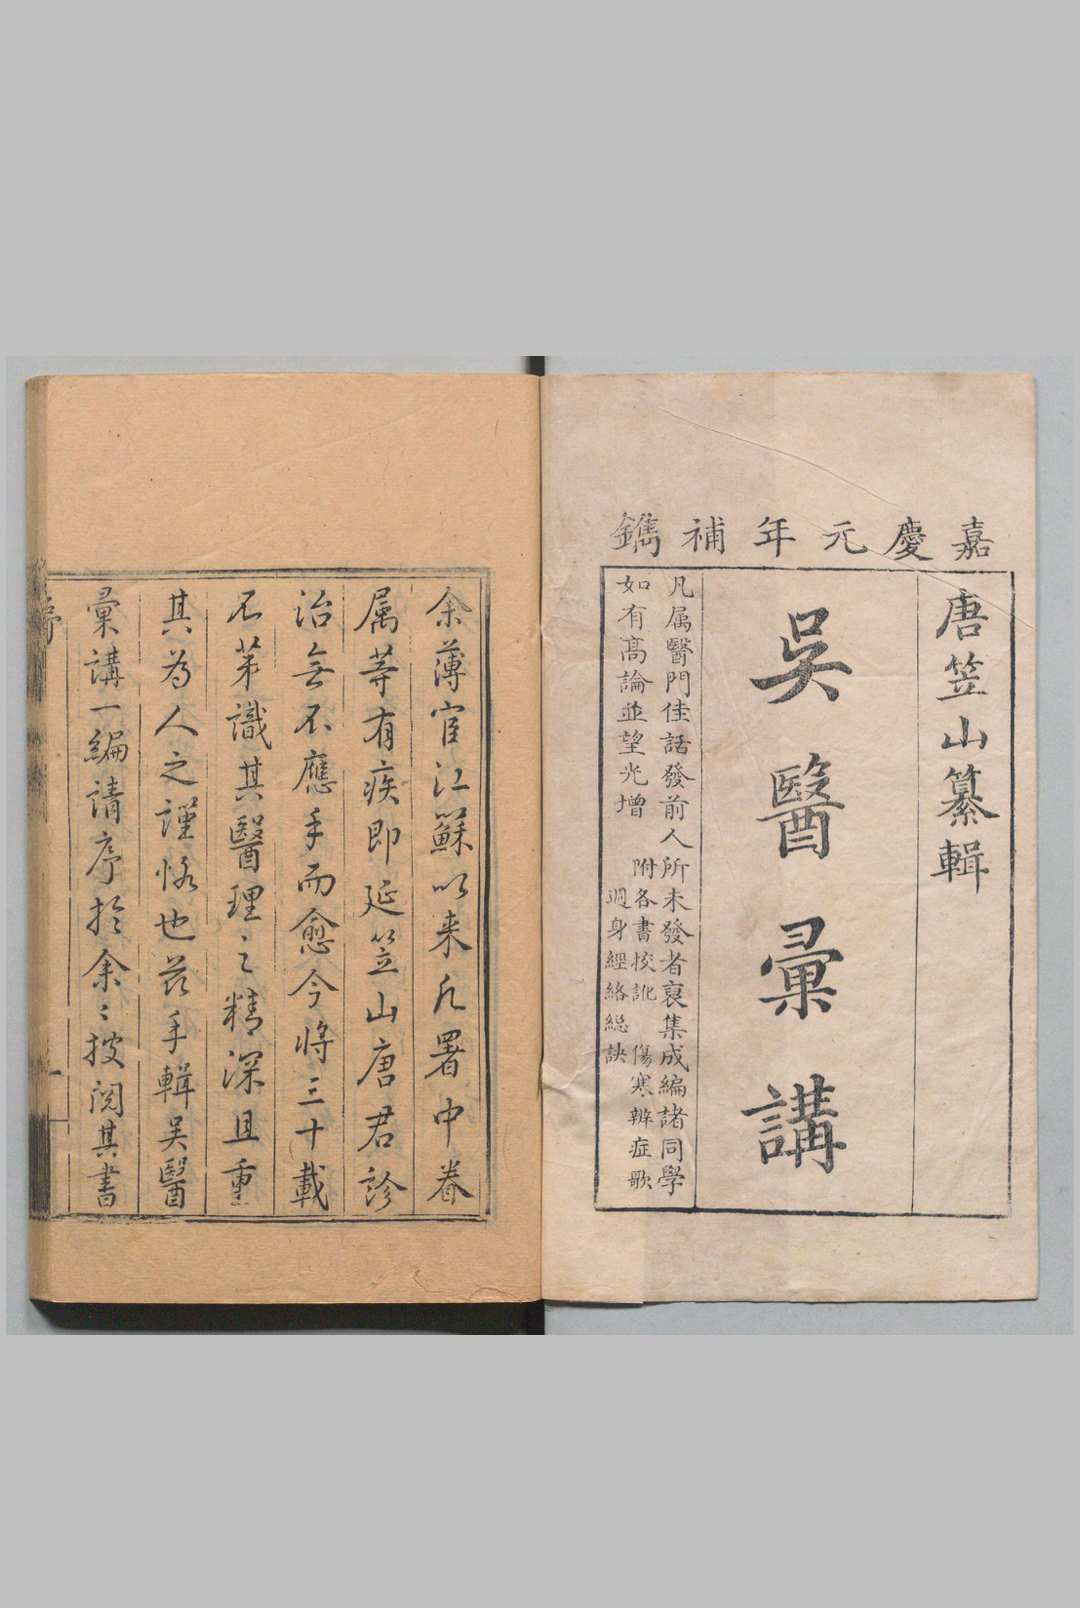 嘉慶元年補鐫
唐笠山纂輯
吳醫彙講
凡属醫門佳話發前人所未發者裒集成編諸同學
如有高論並望光增
附各書挍訛 傷寒辨症歌
週身經絡総訣
余薄宦江蘇以来凡署中眷
属等有疾即延笠山唐君診
治無不應手而愈今将三十載
不苐識其醫理之精深且重
其為人之謹恪也茲手輯吴醫
彙講一編請序於余〻披閲其書
序